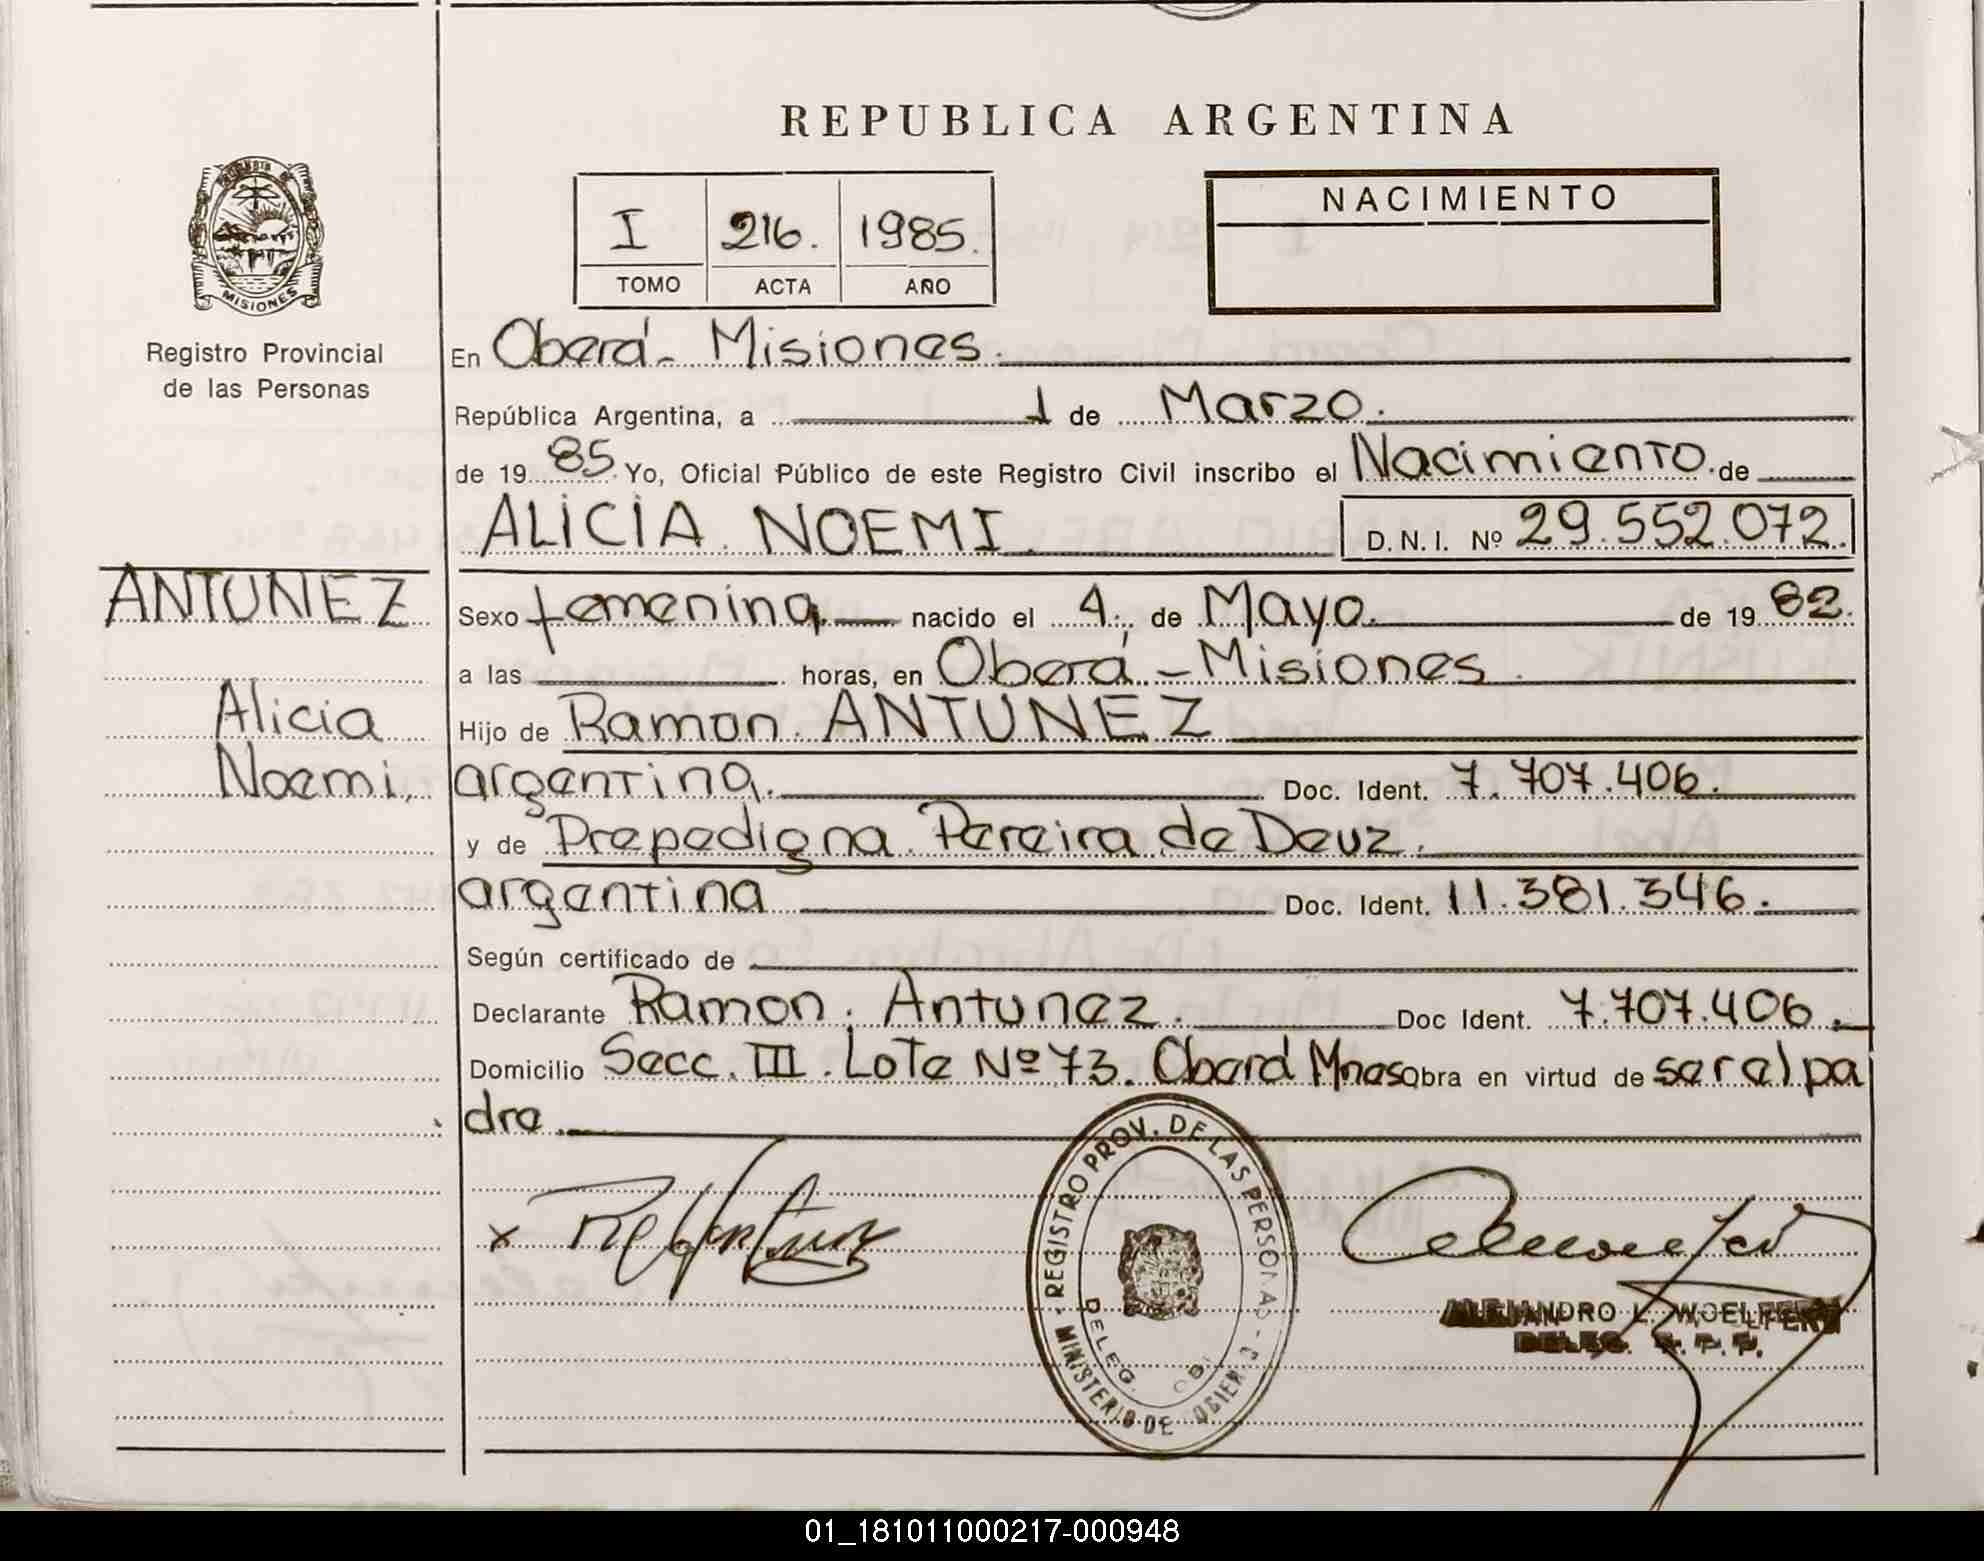 REPUBLICA ARGENTINA
PROVINCIA DE
MISIONES
Registro Provincial
de las Personas
I 216. 1985.
TOMO ACTA AÑO
NACIMIENTO
En Oberá - Misiones.
República Argentina, a 1 de Marzo.
de 19 85. Yo, Oficial Público de este Registro Civil inscribo el Nacimiento. de
ALICIA NOEMI D. N. I. Nº 29.552.072.
ANTUNEZ
Alicia
Noemi.
Sexo femenina. nacido el 4., de Mayo. de 19 82.
a las horas, en Oberá - Misiones.
Hijo de Ramon ANTUNEZ
argentina. Doc. Ident. 7.707.406.
y de Prepedigna Pereira de Deuz.
argentina Doc. Ident. 11.381.346.
Según certificado de
Declarante Ramon Antunez. Doc Ident. 7.707.406.
Domicilio Secc. III. Lote Nº 73. Oberá Mnes Obra en virtud de ser el pa
dre.
x
REGISTRO PROV. DE LAS PERSONAS - MINISTERIO DE GOBIERNO -
DELEG. OB
ALEJANDRO L. WOELFERT
DELEG. R. P. P.
01_181011000217-000948